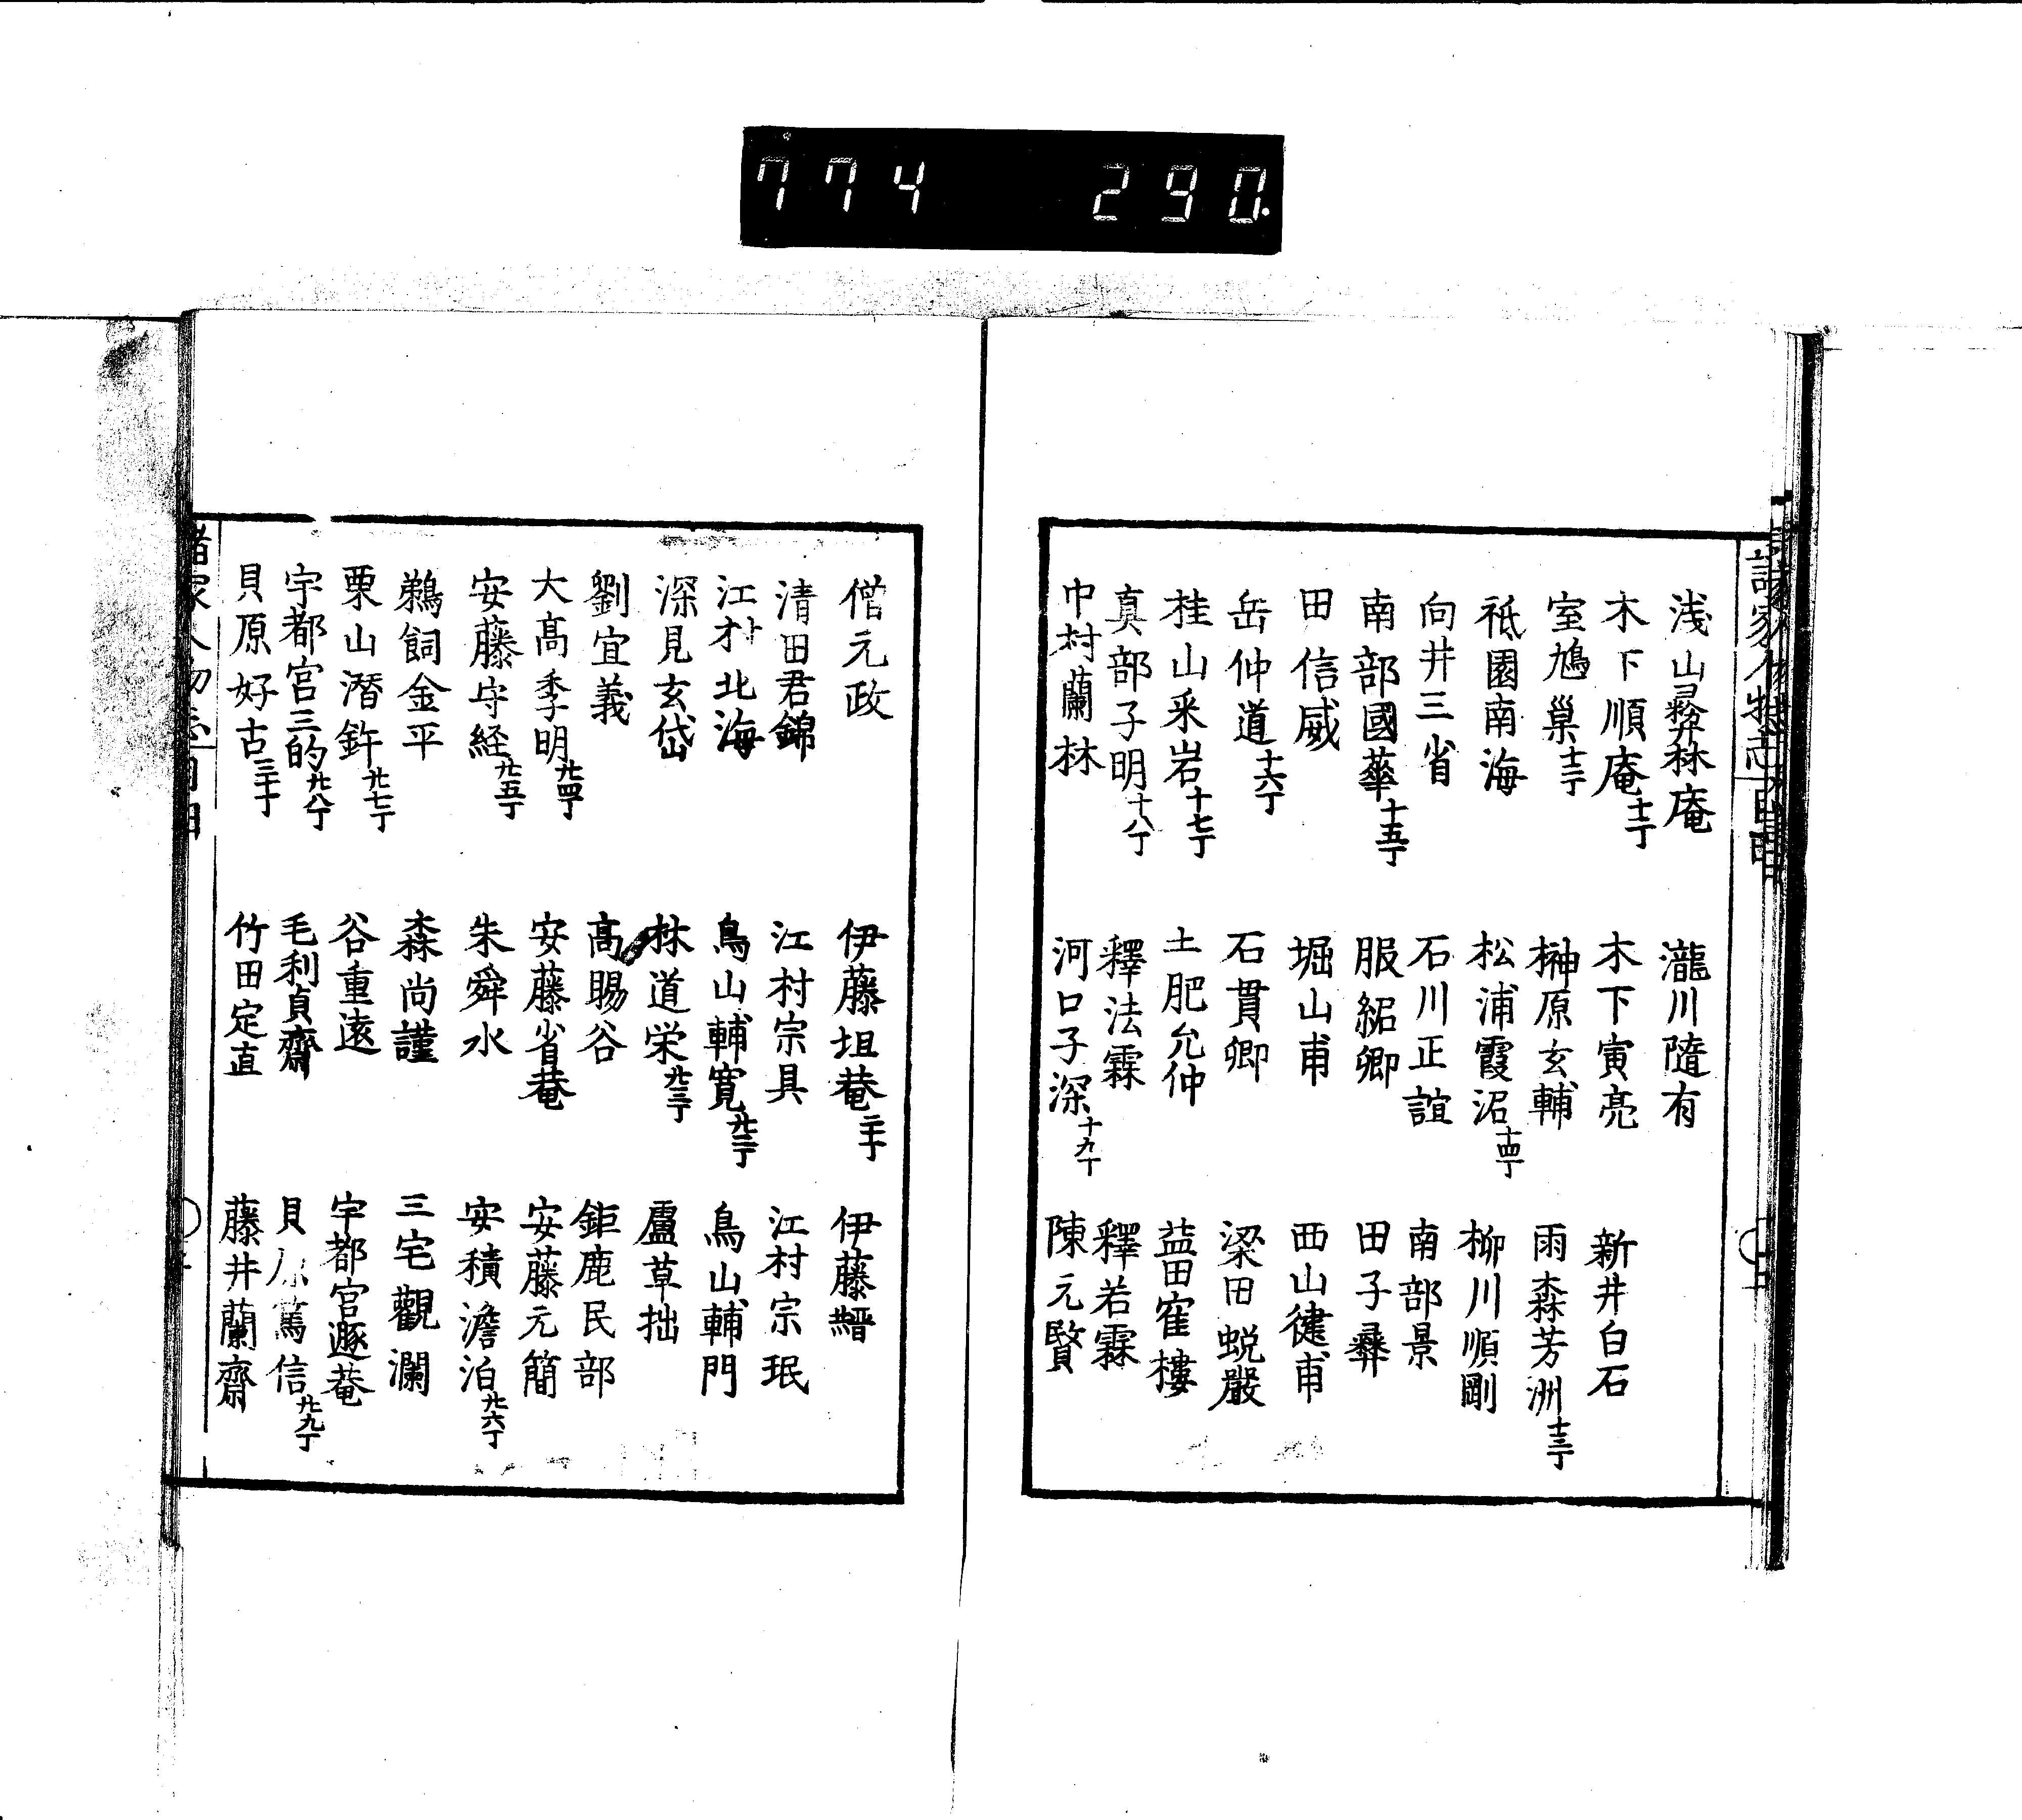 774 290.
諸家人物志 目
浅山彞林庵 瀧川隨有
木下順庵十一丁 木下寅亮 新井白石
室鳩巢十二丁 榊原玄輔 雨森芳洲十三丁
祗園南海 松浦霞沼十四丁 柳川順剛
向井三省 石川正誼 南部景
南部國華十五丁 服紹卿 田子彝
田信威 堀山甫 西山健甫
岳仲道十六丁 石貫卿 梁田蜕巖
桂山采岩十七丁 土肥允仲 益田寉樓
真部子明十八丁 釋法霖 釋若霖
中村蘭林 河口子深十九丁 陳元贇
僧元政 伊藤坦菴二十丁 伊藤縉
清田君錦 江村宗具 江村宗珉
江村北海 鳥山輔寛廿二丁 鳥山輔門
深見玄岱 林道栄廿三丁 盧草拙
劉宜義 高賜谷 鉅鹿民部
大髙季明廿四丁 安藤省菴 安藤元簡
安藤守経廿五丁 朱舜水 安積澹泊廿六丁
鵜飼金平 森尚謹 三宅觀瀾
栗山潛鉾廿七丁 谷重遠 宇都宮遯菴
宇都宮三的廿八丁 毛利貞齋 貝原篤信廿九丁
貝原好古三十丁 竹田定直 藤井蘭齋
諸家人物志 目